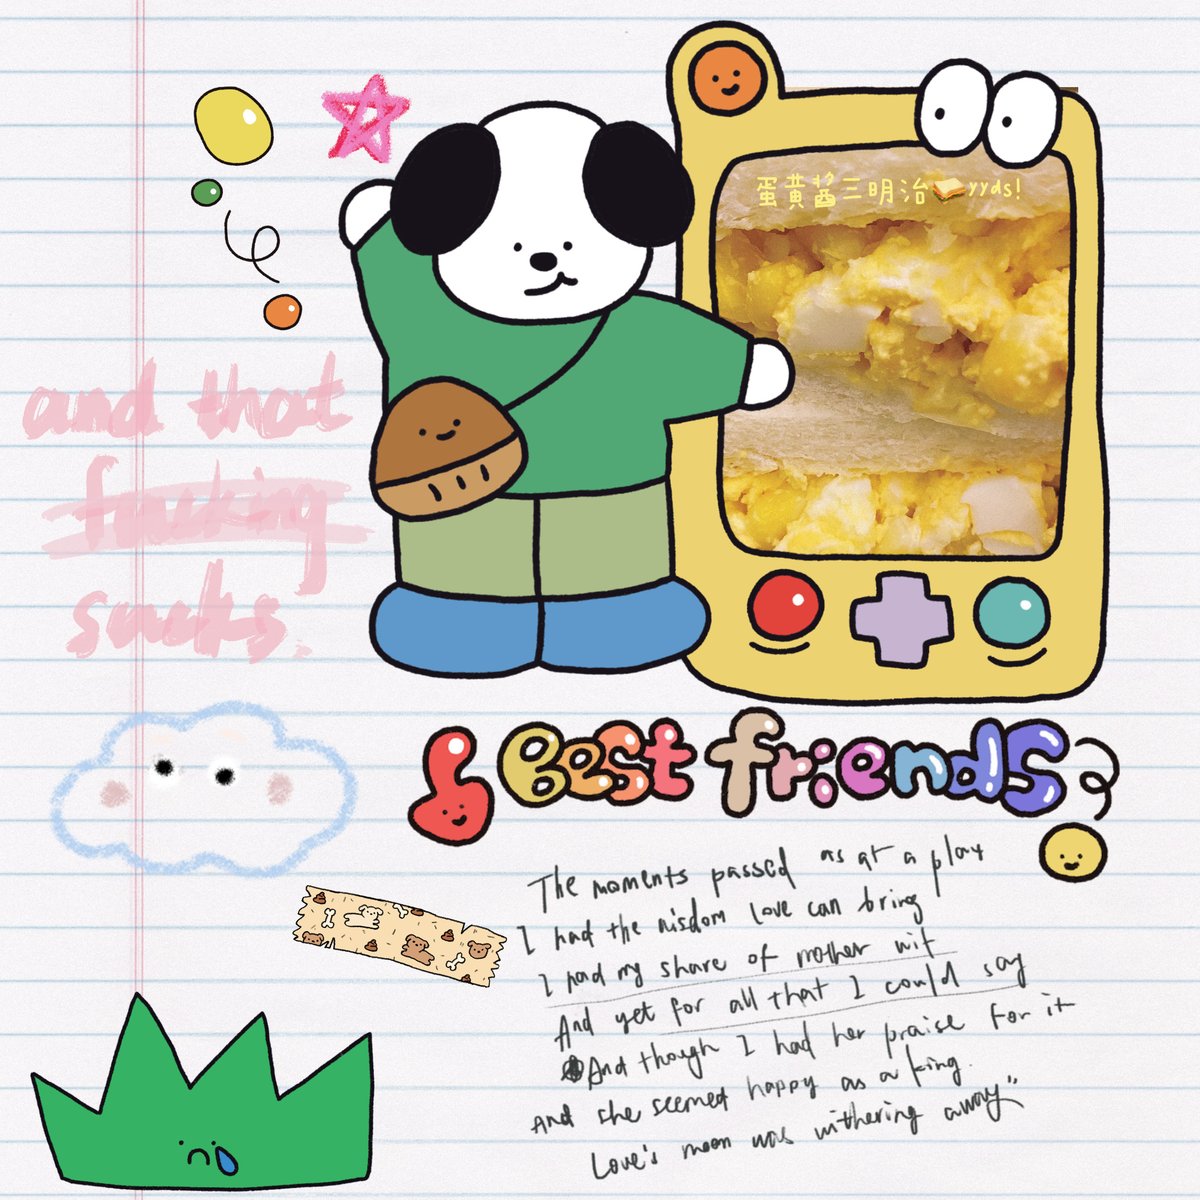 蛋黃醬三明治🥪yyds!
and that
fucking
sucks.
Best friends
The moments passed as at a play
I had the wisdom love can bring
I had my share of mother wit
And yet for all that I could say
And though I had her praise for it
And she seemed happy as a king.
Love's moon was withering away"